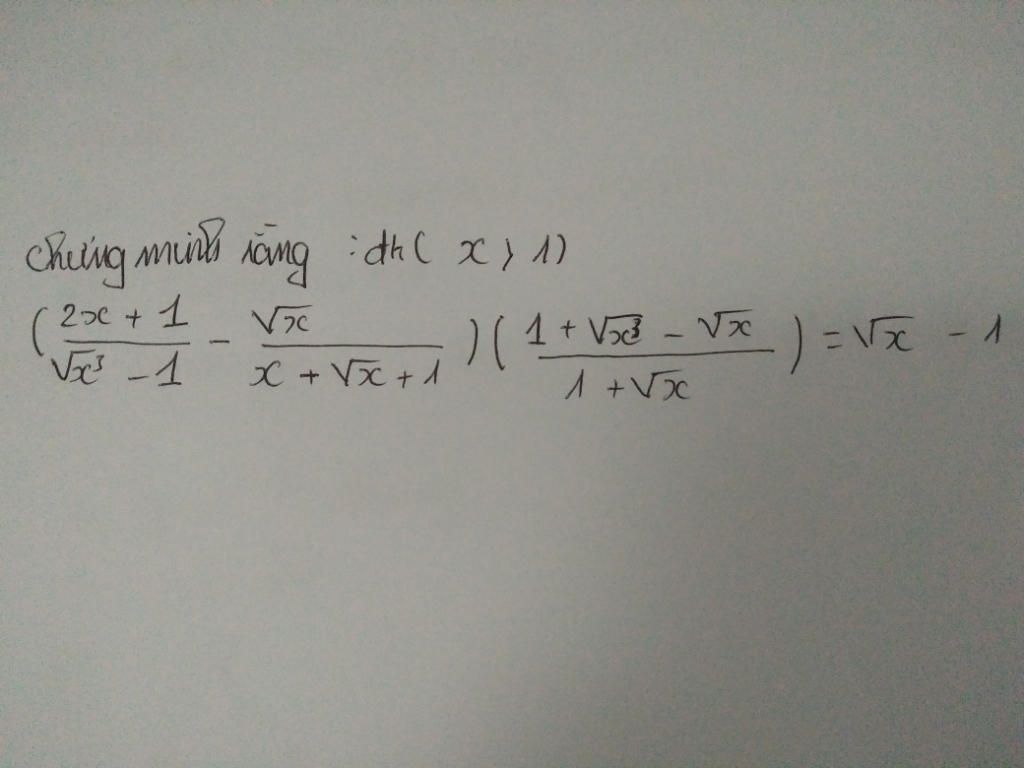 chứng minh rằng : đk ( x > 1)
( \frac{2x + 1}{\sqrt{x^3} - 1} - \frac{\sqrt{x}}{x + \sqrt{x} + 1} ) ( \frac{1 + \sqrt{x^3} - \sqrt{x}}{1 + \sqrt{x}} ) = \sqrt{x} - 1